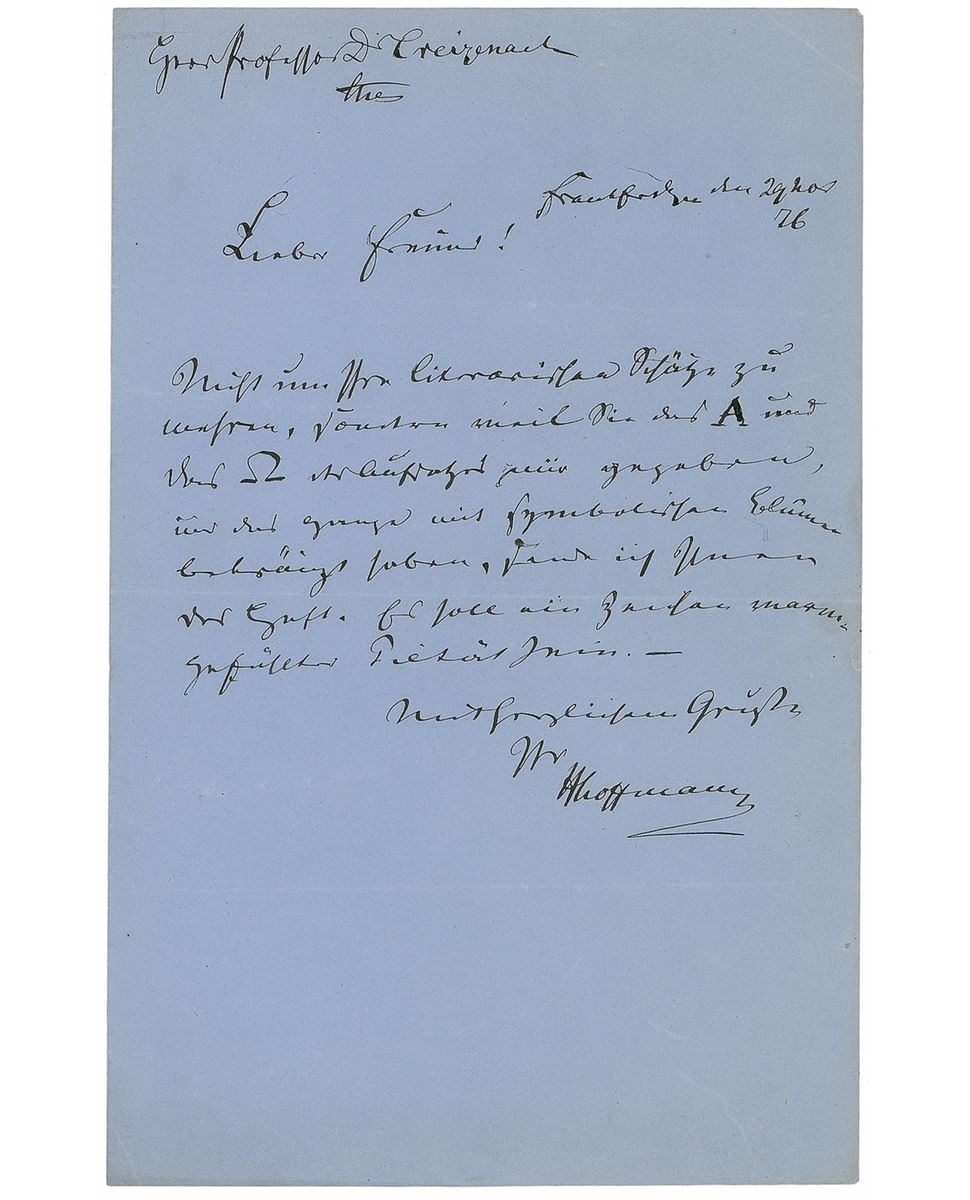 Herr Professor Dr Creizenach
hier
Frankfurt den 29 Nov
76
Lieber Freund!
Nicht um Ihre literarischen Schätze zu
mehren, sondern weil Sie das A und
das Ω des Aufsatzes mir gegeben,
und das ganze mit symbolischen Blumen
bekränzt haben, sende ich Ihnen
das Heft. Es soll ein Zeichen warm-
gefühlter Pietät sein. —
Mit herzlichem Gruße
Ihr
HHoffmann